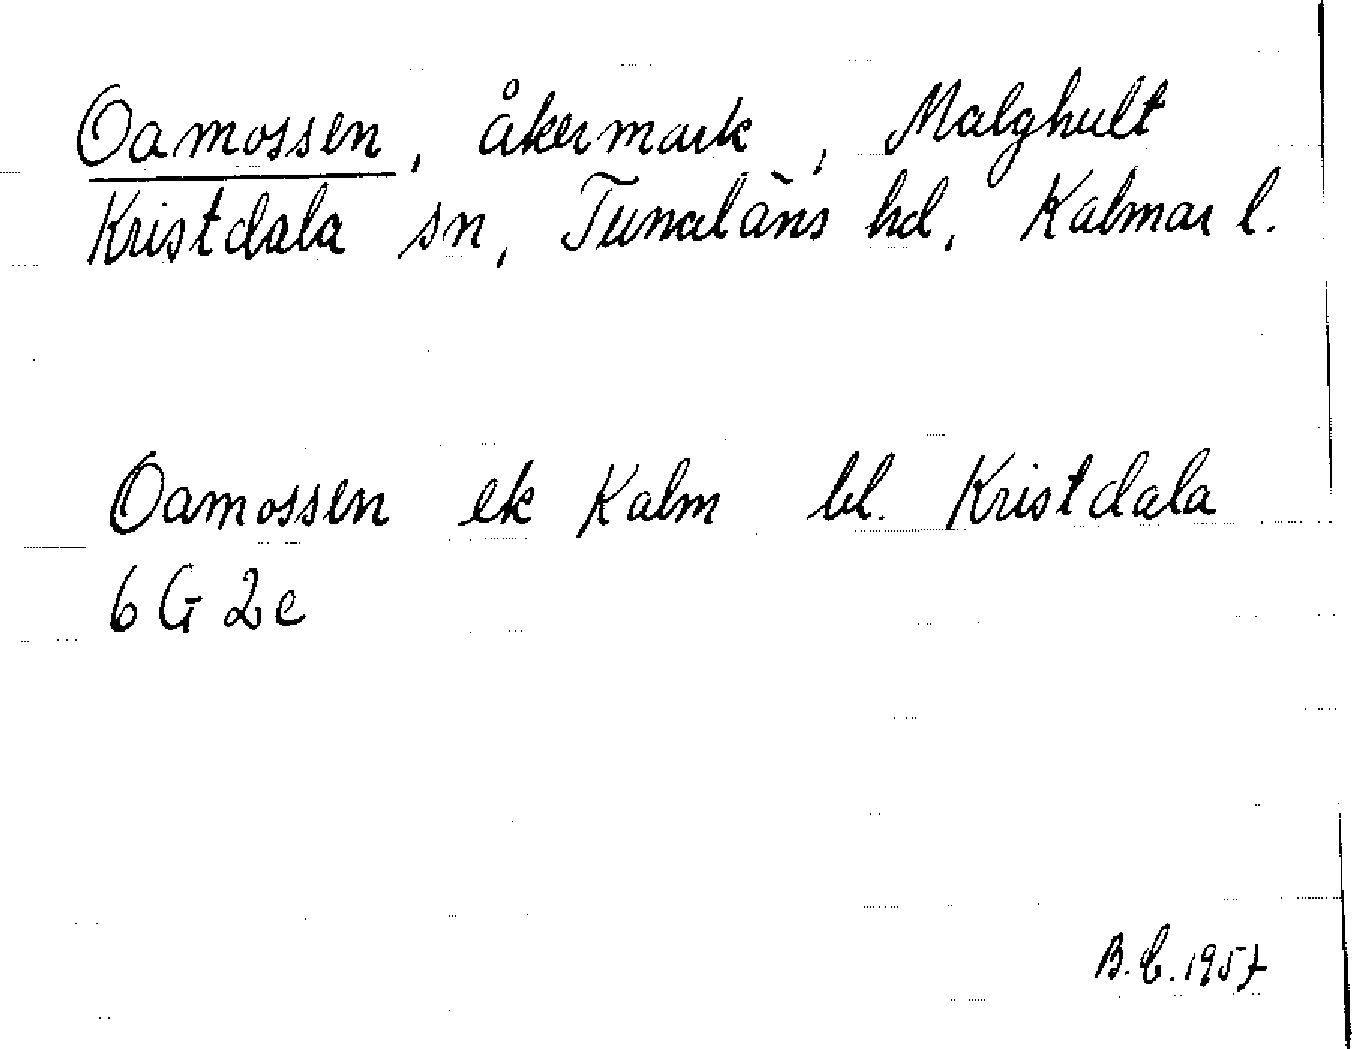 Oamossen, åkermark, Malghult
Kristdala sn, Tunaläns hd, Kalmar l.
Oamossen ek Kalm bl. Kristdala
6 G 2 c
B.C. 1957